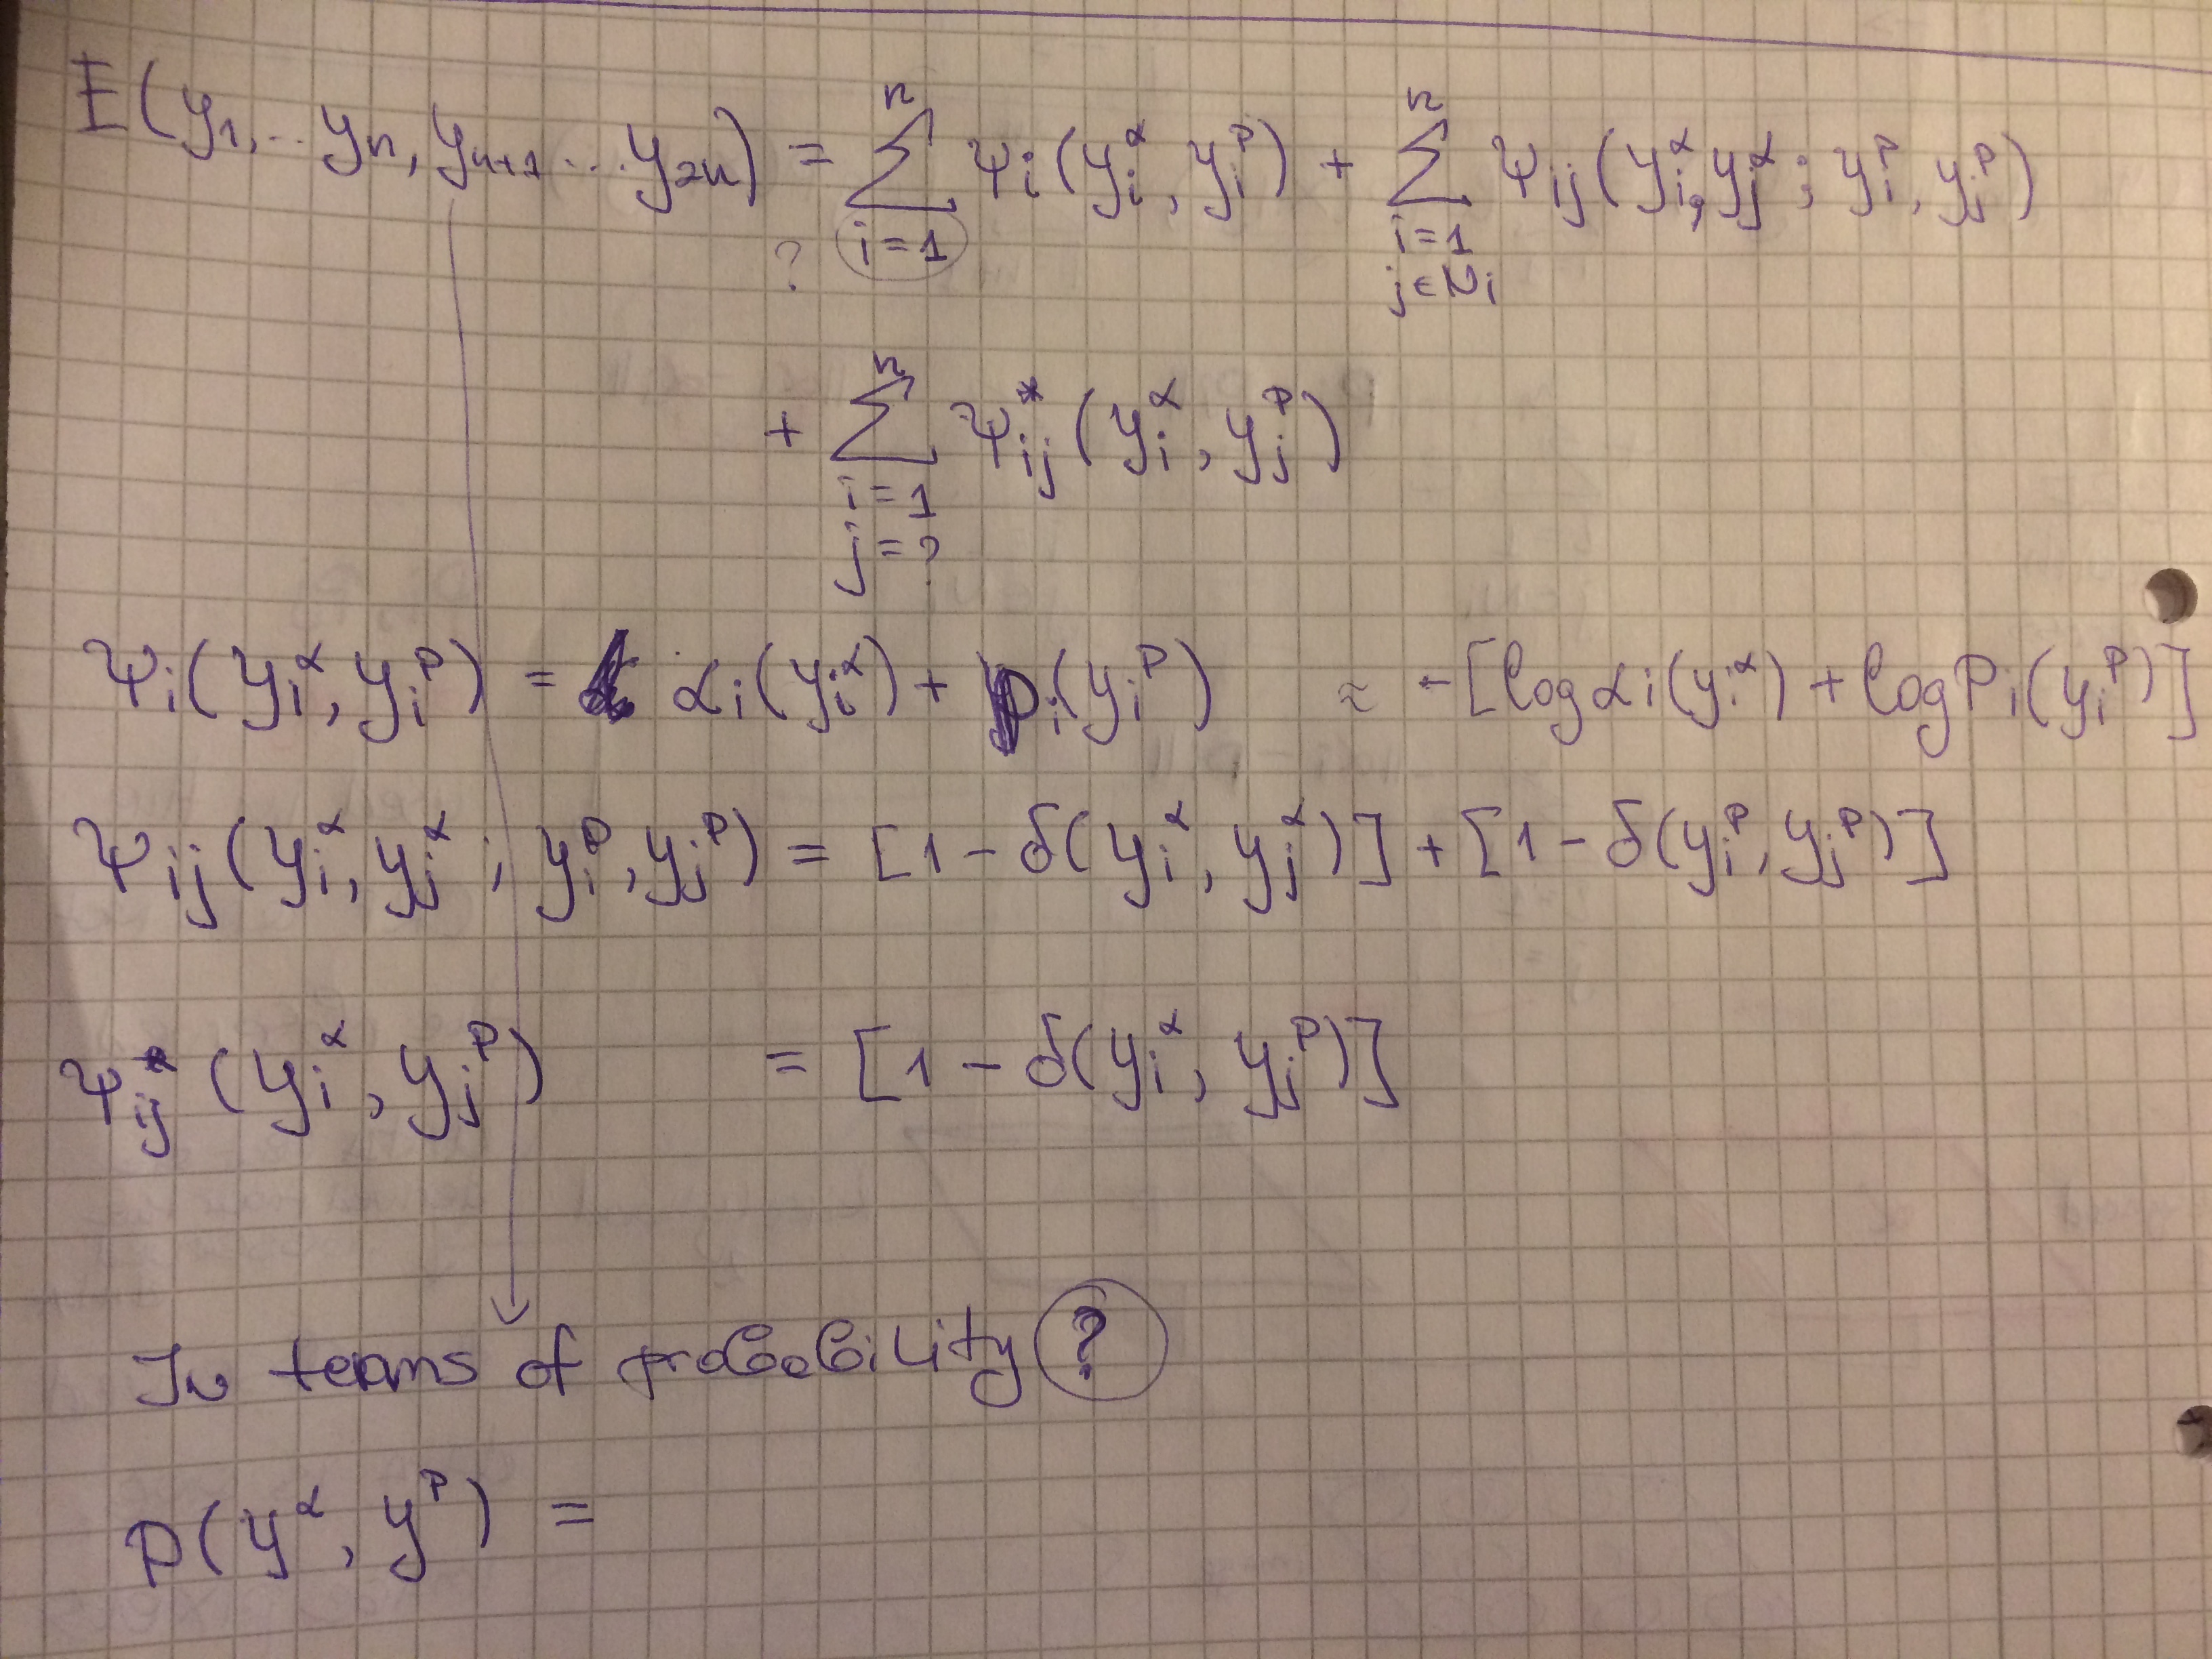 E(y₁, .. yₙ, yₙ₊₁ ... y₂ₙ) = ∑ⁿ ψᵢ(yᵢ^α, yᵢ^p) + ∑ⁿ ψᵢⱼ(yᵢ^α, yⱼ^α ; yᵢ^p, yⱼ^p)
? i=1 i=1
j∈Nᵢ
+ ∑ⁿ ψ*ᵢⱼ(yᵢ^α, yⱼ^p)
i=1
j=?
ψᵢ(yᵢ^α, yᵢ^p) = αᵢ(yᵢ^α) + pᵢ(yᵢ^p) ≈ -[log αᵢ(yᵢ^α) + log pᵢ(yᵢ^p)]
ψᵢⱼ(yᵢ^α, yⱼ^α ; yᵢ^p, yⱼ^p) = [1 - δ(yᵢ^α, yⱼ^α)] + [1 - δ(yᵢ^p, yⱼ^p)]
ψ*ᵢⱼ(yᵢ^α, yⱼ^p) = [1 - δ(yᵢ^α, yⱼ^p)]
In terms of probability ?
p(y^α, y^p) =